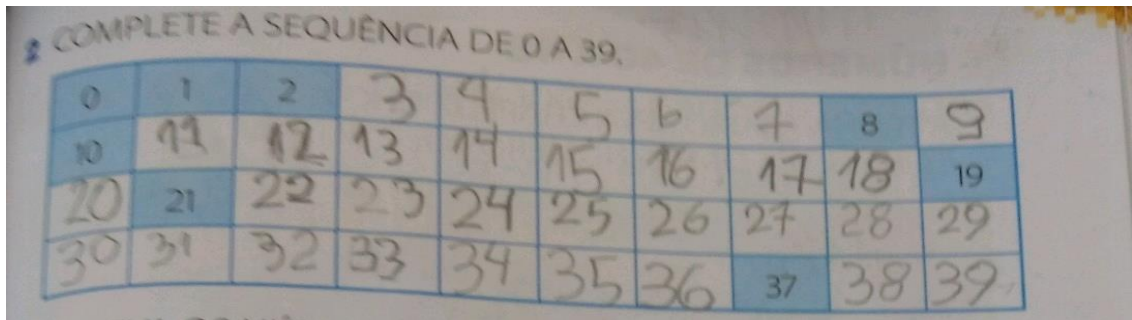 COMPLETE A SEQUÊNCIA DE 0 A 39.
0 1 2 3 4 5 6 7 8 9
10 11 12 13 14 15 16 17 18 19
20 21 22 23 24 25 26 27 28 29
30 31 32 33 34 35 36 37 38 39